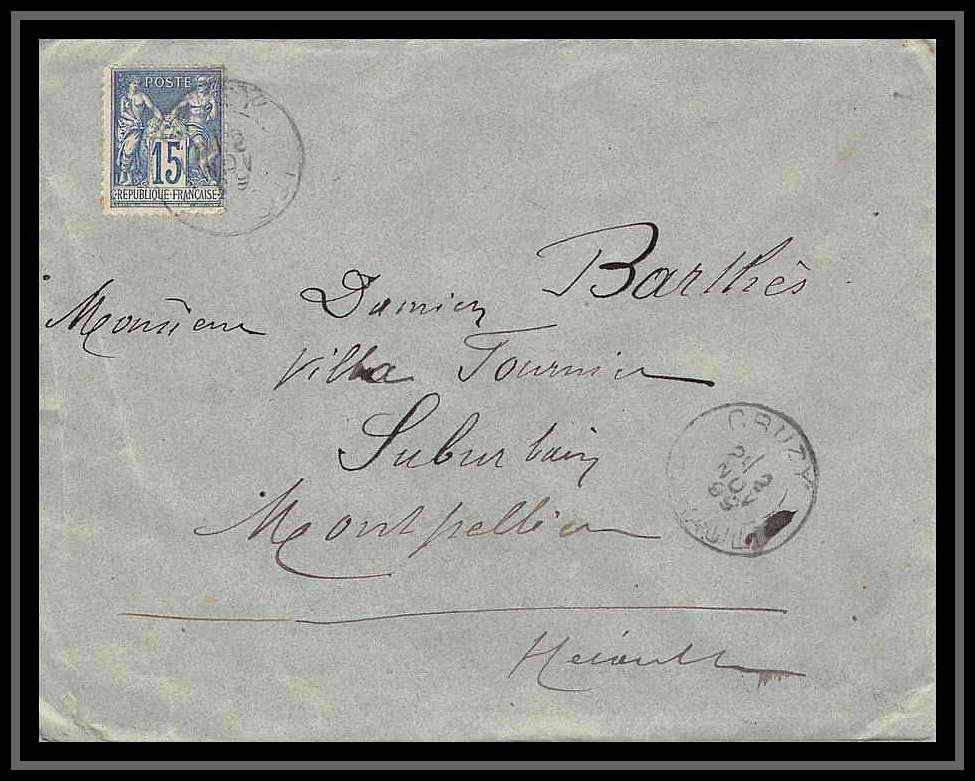 POSTE
15
REPUBLIQUE FRANÇAISE
Monsieur Damien Barthès
Villa Tournier
Suburbain
Montpellier
Hérault
CRUZY
2
NOV